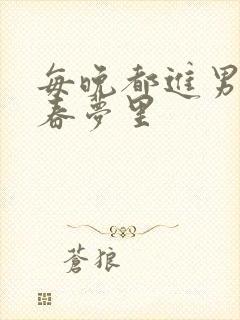 每晚都进男
春梦里
蒼狼